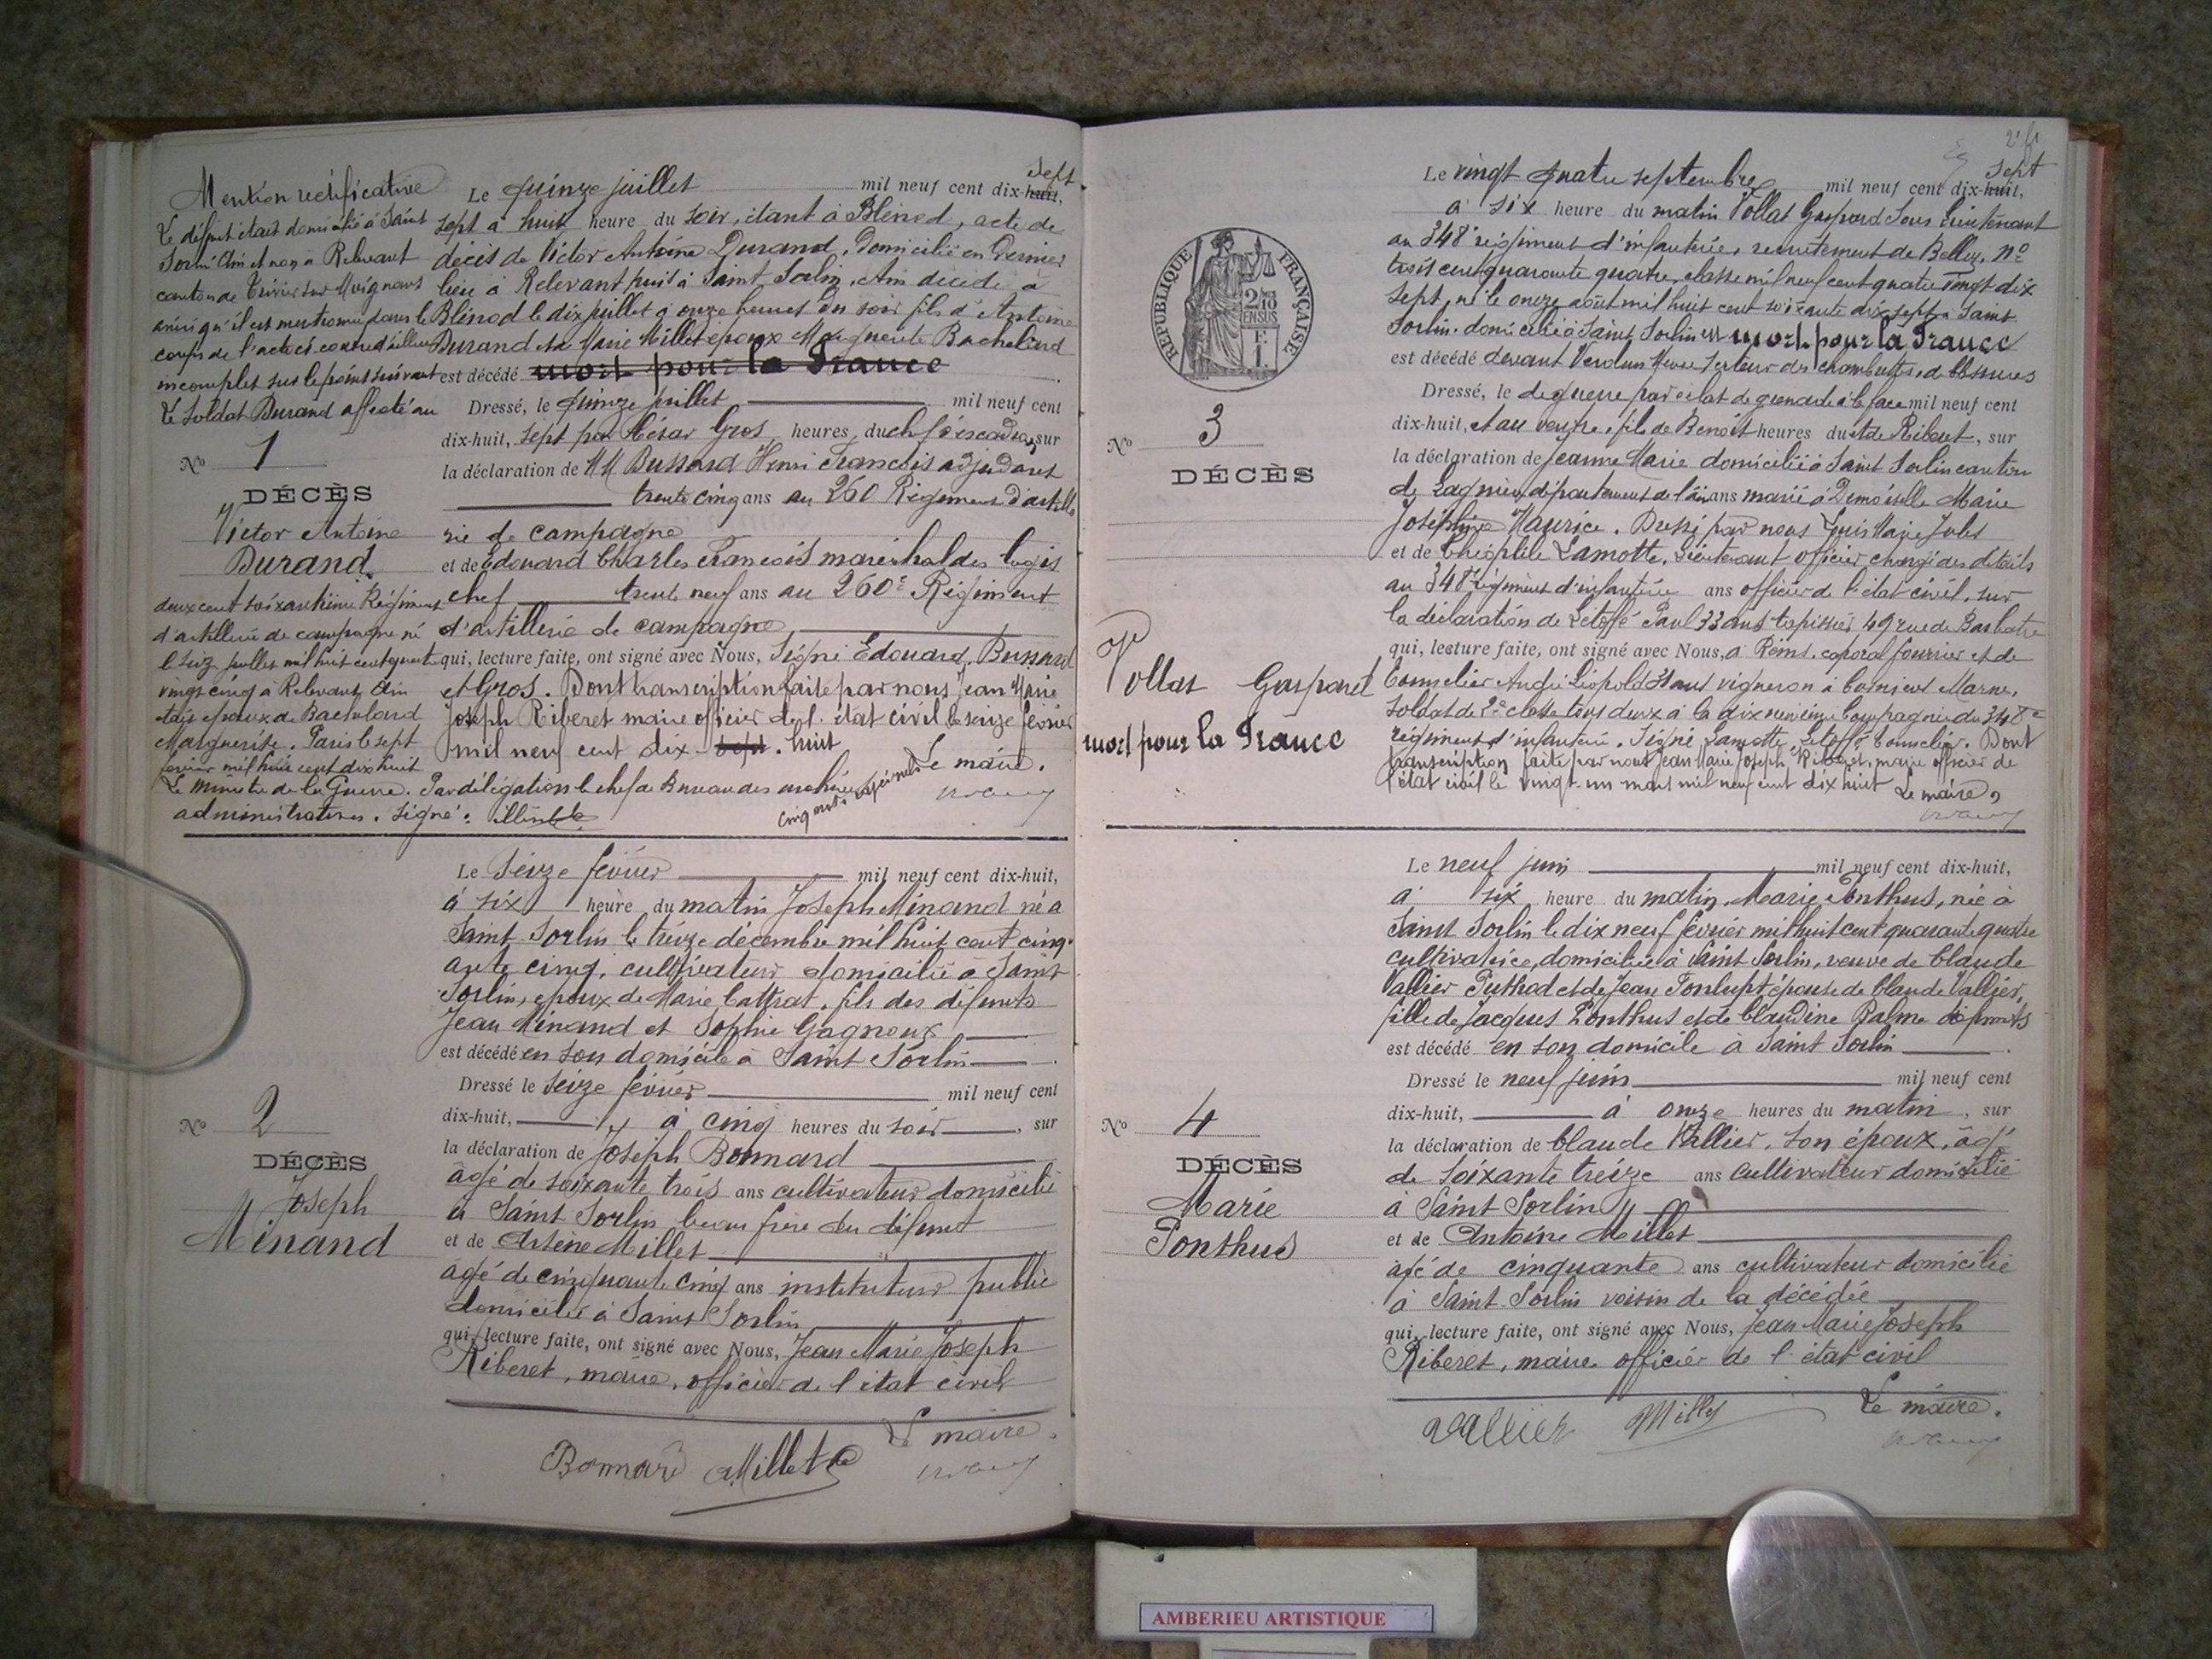 Mention rectificative
Le défunt était domicilié à Saint
Sorlin Ain et non à Relevant
canton de
ainsi qu'il est mentionné dans le
corps de l'acte ci-contre d'ailleurs
incomplet sur le point suivant
Le soldat Durand affecté au
No 1
DÉCÈS
Victor Antoine
Durand.
deux cent soixantième Régiment
d'artillerie de campagne né
vingt cinq à Relevant Ain
était époux de Bachelard
Marguerite. Paris le sept
février mil neuf cent dix huit
Le Ministre de la Guerre. Par délégation le chef de Bureau des archives
administratives. Signé: illisible
Sept
Le quinze juillet mil neuf cent dix-huit,
sept à huit heure du soir, étant à Blénod, acte de
décès de Victor Antoine Durand. Domicilié en dernier
lieu à Relevant puis à Saint Sorlin, Ain décédé à
Blénod le dix juillet à onze heures du soir fils d'Antoine
Durand et de Marie Millet époux Marguerite Bachelard
est décédé mort pour la France
Dressé, le quinze juillet mil neuf cent
dix-huit, sept par César Gros heures, du chef d'escadron, sur
la déclaration de MM Bussard Henri François adjudant
trente cinq ans au 260 Régiment d'artille
rie de campagne
et de Edouard Charles François maréchal des logis
chef trente neuf ans au 260e Régiment
d'artillerie de campagne
qui, lecture faite, ont signé avec Nous, Signé Edouard, Bussard
et Gros. Dont transcription faite par nous Jean Marie
Joseph Riberet maire officier de l'état civil le seize février
mil neuf cent dix sept. huit
Le maire.
No 2
DÉCÈS
Joseph
Minand
Le Seize février mil neuf cent dix-huit,
à six heure du matin Joseph Minand né à
Saint Sorlin le treize décembre mil huit cent cinq
ante cinq, cultivateur domicilié à Saint
Sorlin, époux de Marie Cattrat, fils des défunts
Jean Minand et Sophie Gagneux
est décédé en son domicile à Saint Sorlin
Dressé le seize février mil neuf cent
dix-huit, à cinq heures du soir, sur
la déclaration de Joseph Bonnard
âgé de soixante trois ans cultivateur domicilié
à Saint Sorlin beau frère du défunt
et de Arsène Millet
âgé de cinquante cinq ans instituteur public
domicilié à Saint Sorlin
qui, lecture faite, ont signé avec Nous, Jean Marie Joseph
Riberet, maire, officier de l'état civil
Le maire.
Bonnard A. Millet
RÉPUBLIQUE FRANÇAISE
No 3
DÉCÈS
Vollat Gaspard
mort pour la France
sept
Le vingt quatre septembre mil neuf cent dix-huit,
à six heure du matin Vollat Gaspard Sous lieutenant
au 348e régiment d'infanterie, recrutement de Belley, No
trois cent quarante quatre, classe mil neuf cent quatre vingt dix
sept, né le onze août mil huit cent soixante dix sept à Saint
Sorlin. domicilié à Saint Sorlin mort pour la France
est décédé devant Verdun Meuse secteur des chambrettes, de blessures
Dressé, le de guerre par éclat de grenade à la face mil neuf cent
dix-huit, et au ventre, fils de Benoit heures du et de Riberet, sur
la déclaration de Jeanne Marie domicilié à Saint Sorlin canton
de Lagnieu, département de l'ain ans marié à Demoiselle Marie
Joséphine Maurice. Dressé par nous Louis Marie Jules
et de Théophile Lamotte, lieutenant officier chargé des détails
au 348e régiment d'infanterie ans officier de l'état civil, sur
la déclaration de Létoffé Paul 33 ans tapissier 49 rue de Barbatre
qui, lecture faite, ont signé avec Nous, à Reims, caporal fourrier et de
Tonnelier André Léopold 31 ans vigneron à Marne,
soldat de 2e classe tous deux à la dix neuvième compagnie du 348e
régiment d'infanterie. Signé Lamotte, Létoffé Tonnelier. Dont
transcription faite par nous Jean Marie Joseph Riberet, maire officier de
l'état civil le vingt-un mars mil neuf cent dix huit Le maire,
No 4
DÉCÈS
Marie
Ponthus
Le neuf juin mil neuf cent dix-huit,
à six heure du matin, Marie Ponthus, née à
Saint Sorlin le dix neuf février mil huit cent quarante quatre
cultivatrice, domiciliée à Saint Sorlin, veuve de Claude
Vallier Puthod et de Jean Fonlupt épouse de Claude Vallier,
fille de Jacques Ponthus et de Claudine Balme défunts
est décédé en son domicile à Saint Sorlin
Dressé le neuf juin mil neuf cent
dix-huit, à onze heures du matin, sur
la déclaration de Claude Vallier, son époux, âgé
de soixante treize ans cultivateur domicilié
à Saint Sorlin
et de Antoine Millet
âgé de cinquante ans cultivateur domicilié
à Saint-Sorlin voisin de la décédée
qui, lecture faite, ont signé avec Nous, Jean Marie Joseph
Riberet, maire officier de l'état civil
Le maire.
Vallier
AMBERIEU ARTISTIQUE